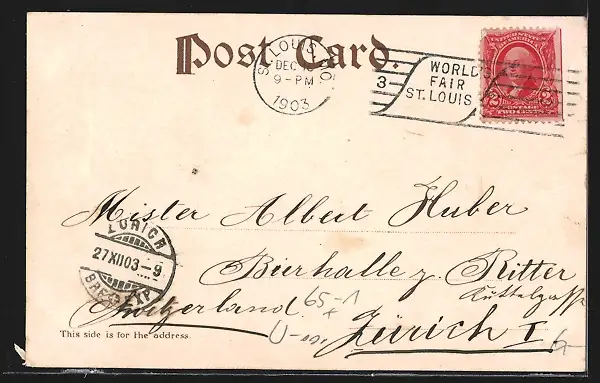 Post Card.
ST. LOUIS, MO.
DEC
9-PM
1903
3
WORLD'S
FAIR
ST. LOUIS
UNITED STATES
OF AMERICA
2 2
POSTAGE
TWO CENTS
Mister Albert Huber
ZÜRICH
27XII03-9
Bierhalle z. Ritter
Kuttelgasse
Switzerland.
Zürich I
This side is for the address.